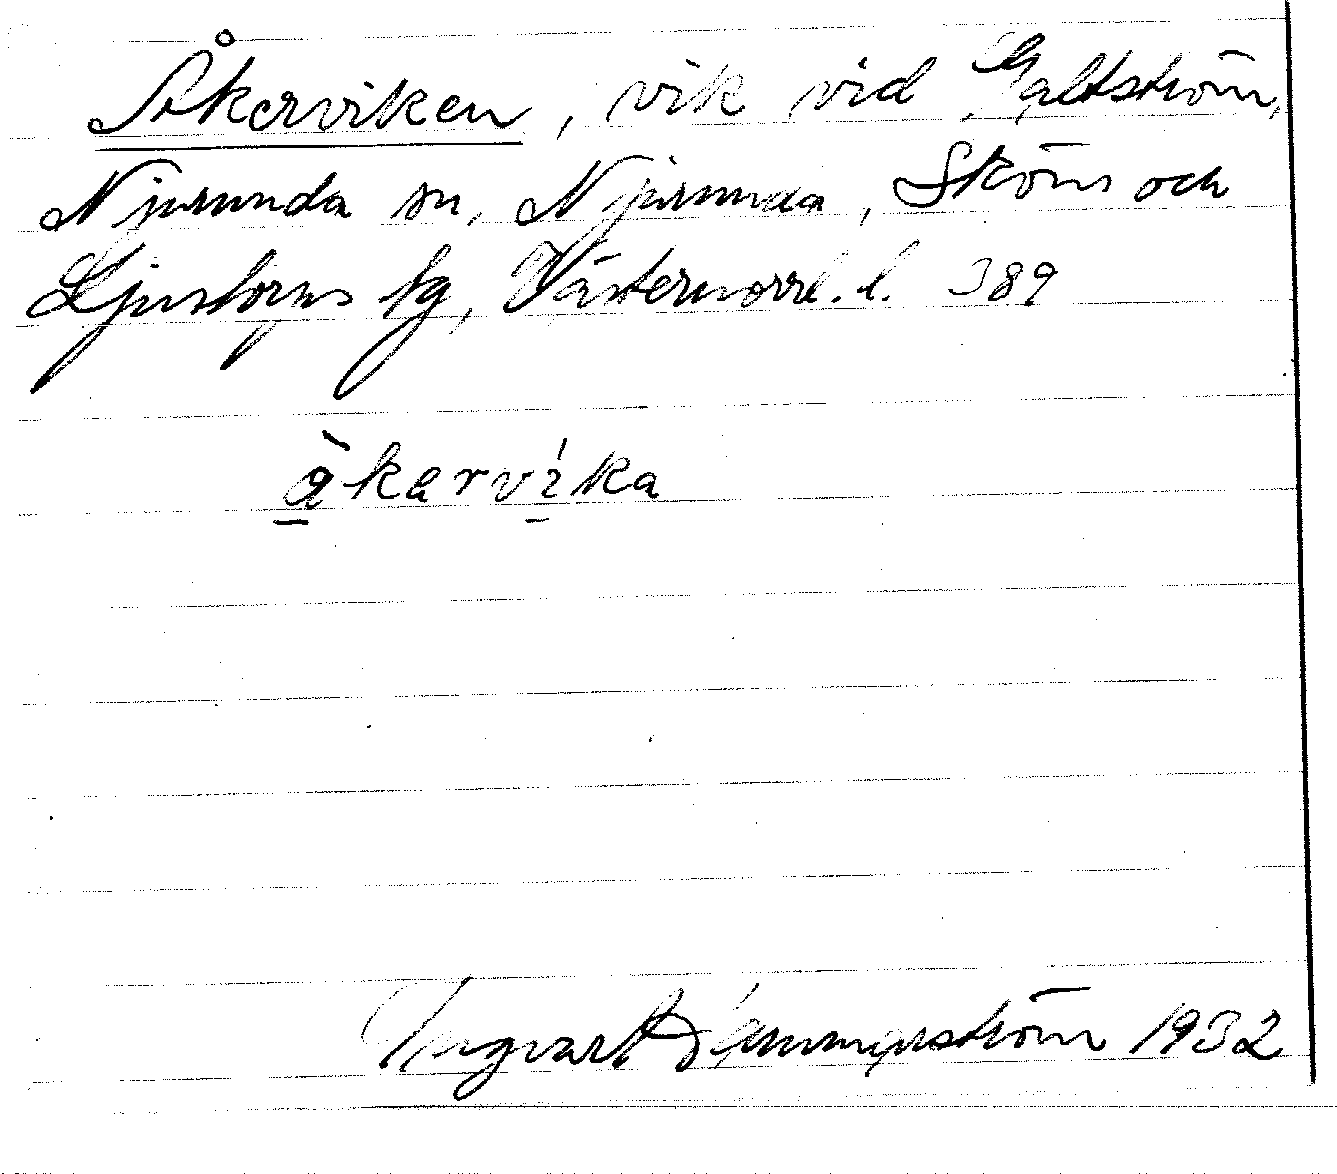 Åkerviken, vik vid Galtström,
Njurunda sn, Njurunda, Sköns och
Ljustorps tg, Västernorrl. l. 389
åkarvika
Ingvart Hammarström 1932